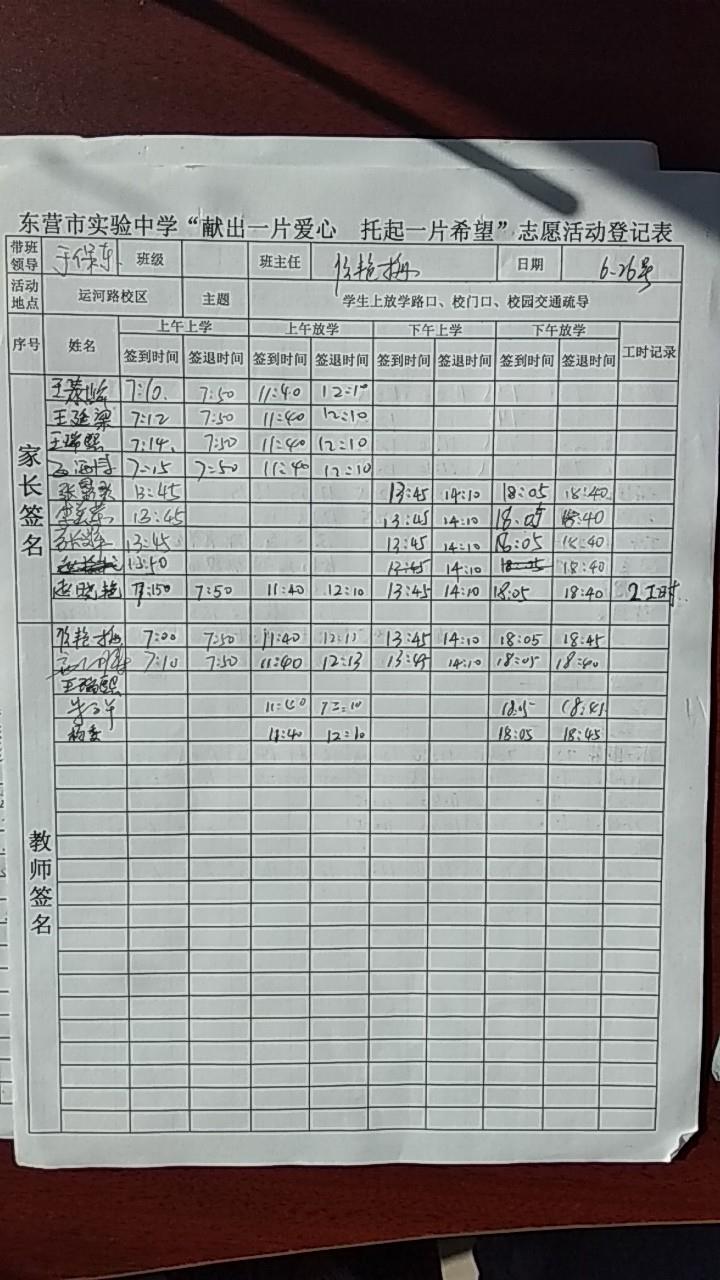 东营市实验中学“献出一片爱心 托起一片希望”志愿活动登记表
带班领导 于保东 班级 班主任 徐艳梅 日期 6-26号
活动地点 运河路校区 主题 学生上放学路口、校门口、校园交通疏导
序号 姓名 上午上学 上午放学 下午上学 下午放学 工时记录
签到时间 签退时间 签到时间 签退时间 签到时间 签退时间 签到时间 签退时间
家长签名
7:10. 7:50 11:40 12:10
王延梁 7:12 7:50 11:40 12:10
王瑞熙 7:14. 7:50 11:40 12:10
7:15 7:50 11:40 12:10
13:45 13:45 14:10 18:05 18:40
13:45 13:45 14:10 18:05 18:40
13:45 13:45 14:10 18:05 18:40
13:50 13:45 14:10 18:05 18:40
赵晓艳 7:50 11:40 12:10 13:45 14:10 18:05 18:40 2工时
教师签名
徐艳梅 7:00 7:50 11:40 12:1 13:45 14:10 18:05 18:45
7:10 7:50 11:40 12:13 13:45 14:10 18:05 18:40
王瑞熙
11:40 12:10 18:05 18:45
杨委 11:40 12:10 18:05 18:45